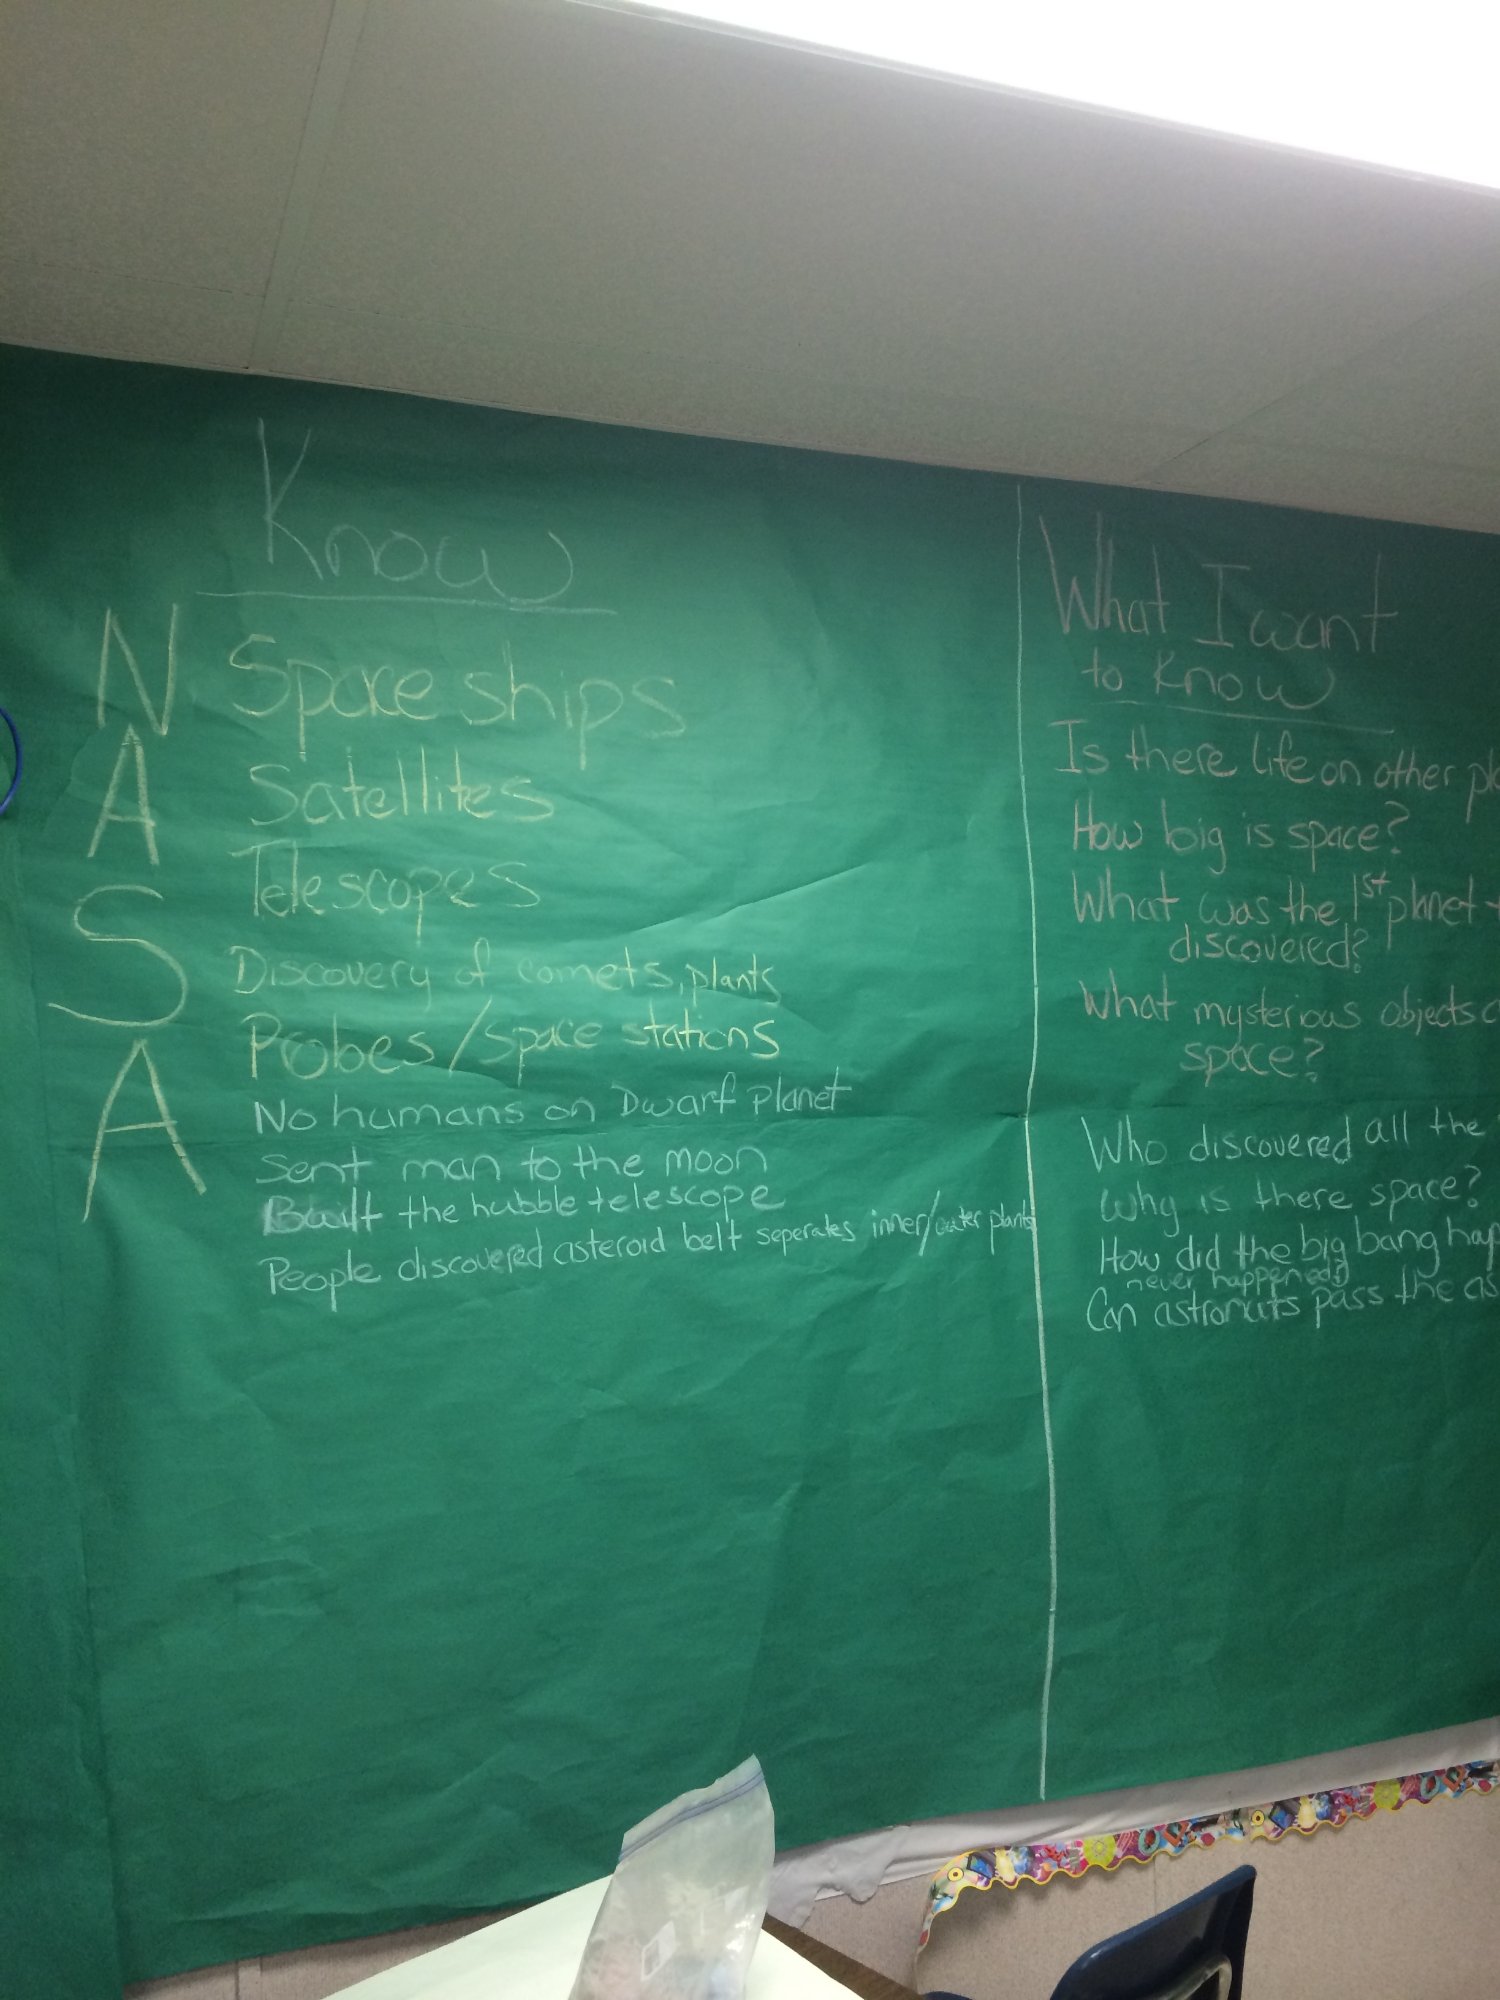 Know
N
A
S
A
Space ships
Satellites
Telescopes
Discovery of comets, plants
Probes/space stations
No humans on Dwarf planet
Sent man to the moon
Built the hubble telescope
People discovered asteroid belt seperates inner/outer plants
What I want
to know
Is there life on other pla
How big is space?
What was the 1st planet
discovered?
What mysterious objects
space?
Who discovered all the
Why is there space?
How did the big bang hap
never happened?
Can astronauts pass the as